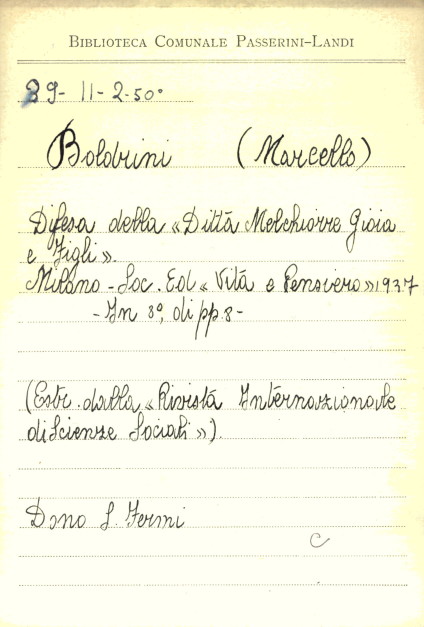 BIBLIOTECA COMUNALE PASSERINI-LANDI
39- 11-2-50°
Boldrini (Marcello)
Difesa della «Ditta Melchiorre Gioia
e Figli».
Milano - Soc. Ed «Vita e Pensiero» 1937
- In 8°, di pp. 8 -
(Estr. dalla «Rivista Internazionale
di Scienze Sociali»).
Dono S. Fermi
C